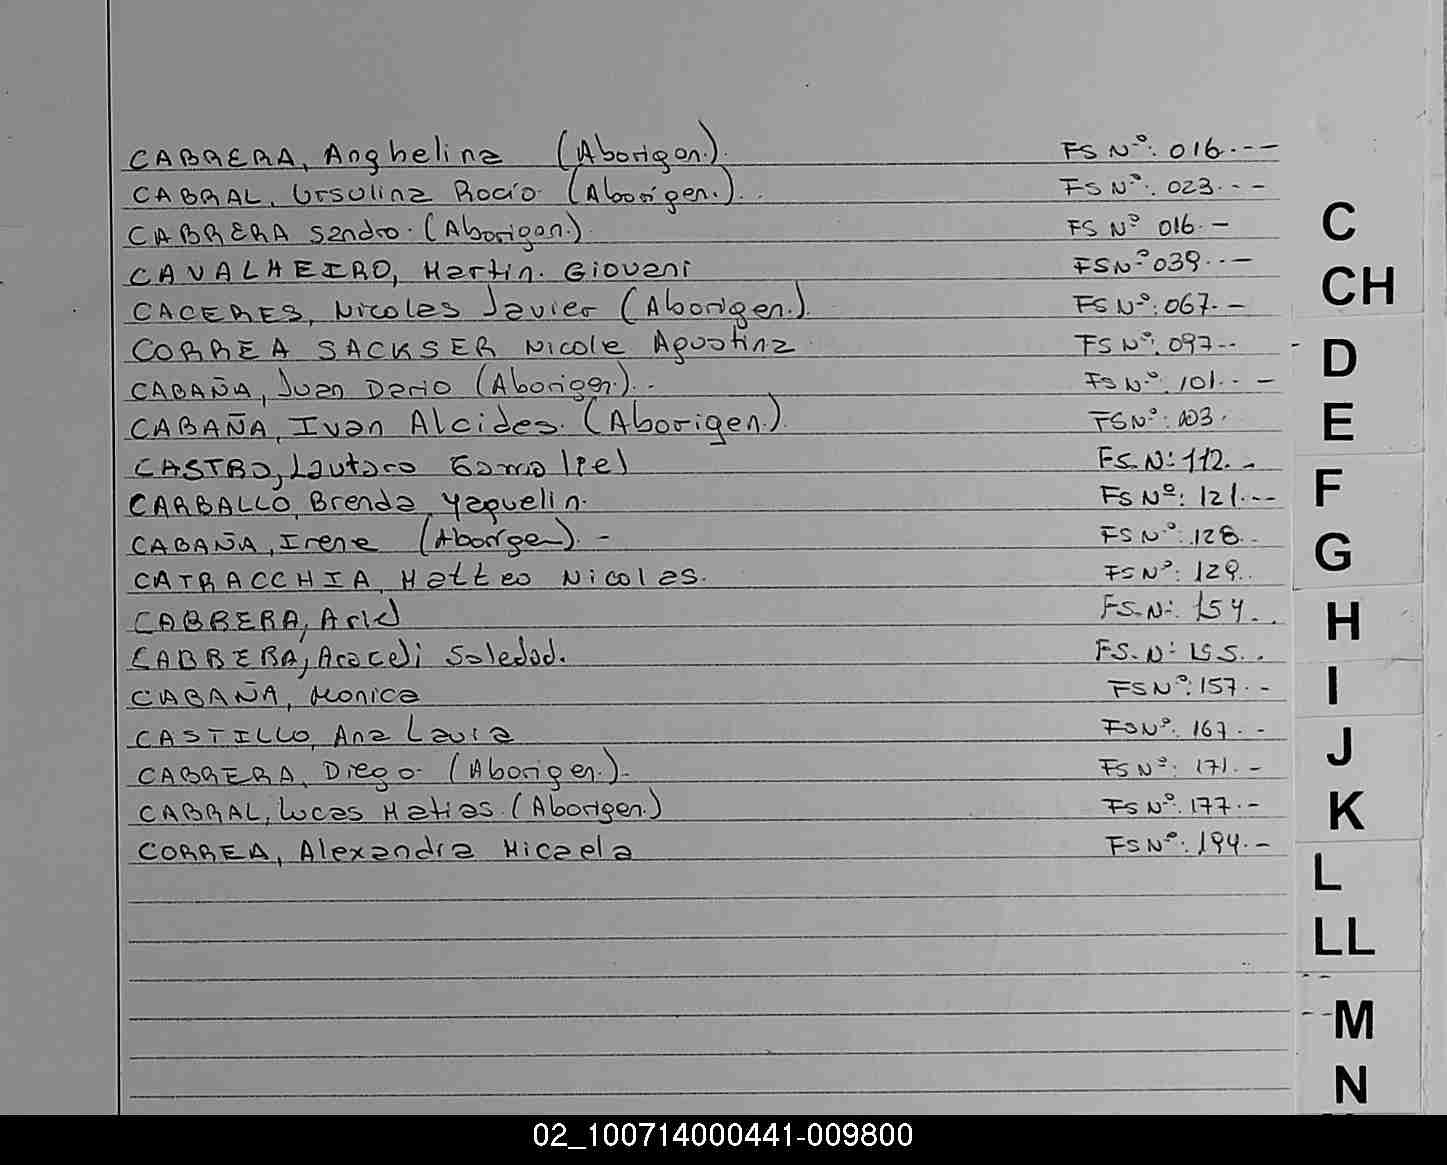 CABRERA, Anghelina (Aborigen.). FS Nº: 016.---
CABRAL, Ursulina Rocío (Aborígen.).. FS Nº: 023.--
CABRERA Sandro. (Aborigen.). FS Nº 016.-
CAVALHEIRO, Martin. Giovani FS Nº 039.--
CACERES, Nicolas Javier (Aborigen.). FS Nº: 067.-
CORREA SACKSER Nicole Agustina FS Nº: 097--
CABAÑA, Juan Dario (Aborigen.).. FS Nº: 101.--
CABAÑA, Ivan Alcides. (Aborigen.). FS Nº: 103.
CASTRO, Lautaro Gamaliel FS.N: 112.-
CARBALLO, Brenda Yaquelin. FS Nº: 121.--
CABAÑA, Irene (Aborígen). - FS Nº: 128..
CATRACCHIA, Matteo Nicolas. FS Nº: 129..
CABRERA, Ariel FS.N: 154..
CABRERA, Araceli Soledad. FS.N: 155..
CABAÑA, Monica FS Nº: 157.-
CASTILLO, Ana Laura FS Nº: 167.-
CABRERA, Diego. (Aborigen.). FS Nº: 171.-
CABRAL, Lucas Matias. (Aborigen.) FS Nº: 177.-
CORREA, Alexandra Micaela FS Nº: 194.-
C
CH
D
E
F
G
H
I
J
K
L
LL
M
N
02_100714000441-009800